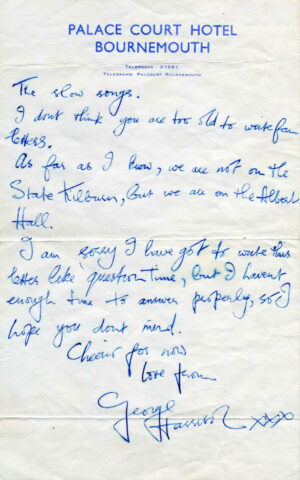 PALACE COURT HOTEL
BOURNEMOUTH
TELEPHONE 27681
TELEGRAMS, PALCOURT BOURNEMOUTH
The slow songs.
I dont think you are too old to write fan
letters.
As far as I know, we are not on the
State Kilburn, but we are on the Albert
Hall.
I am sorry I have got to write this
letter like question time, but I havent
enough time to answer properly, so I
hope you dont mind.
Cheerio for now
love from
George
Harrison xxx